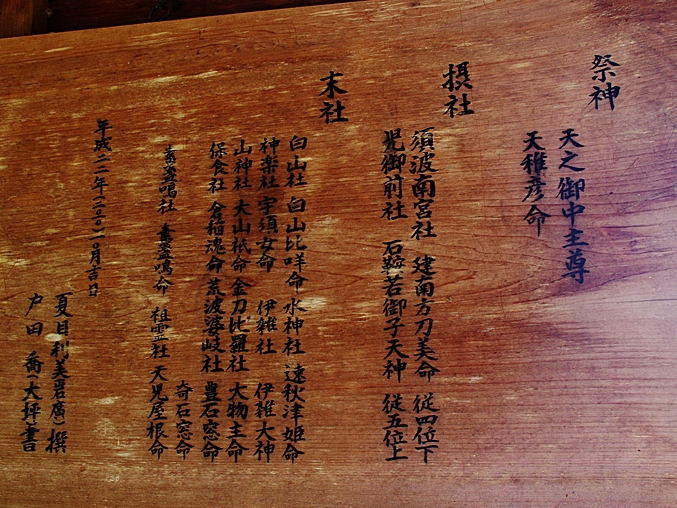 祭神
天之御中主尊
天稚彦命
摂社
須波南宮社 建南方刀美命 従四位下
児御前社 石鞍若御子天神 従五位上
末社
白山社 白山比咩命 水神社 遠秋津姫命
神楽社 宇須女命 伊雑社 伊雑大神
山神社 大山祇命 金刀比羅社 大物主命
保食社 倉稲魂命 荒波婆岐社 豊石窓命
奇石窓命
素盞嗚社 素盞嗚命 祖霊社 天児屋根命
平成二二年(二〇一〇)一〇月吉日
夏目利美(君廣)撰
戸田喬(大坪)書